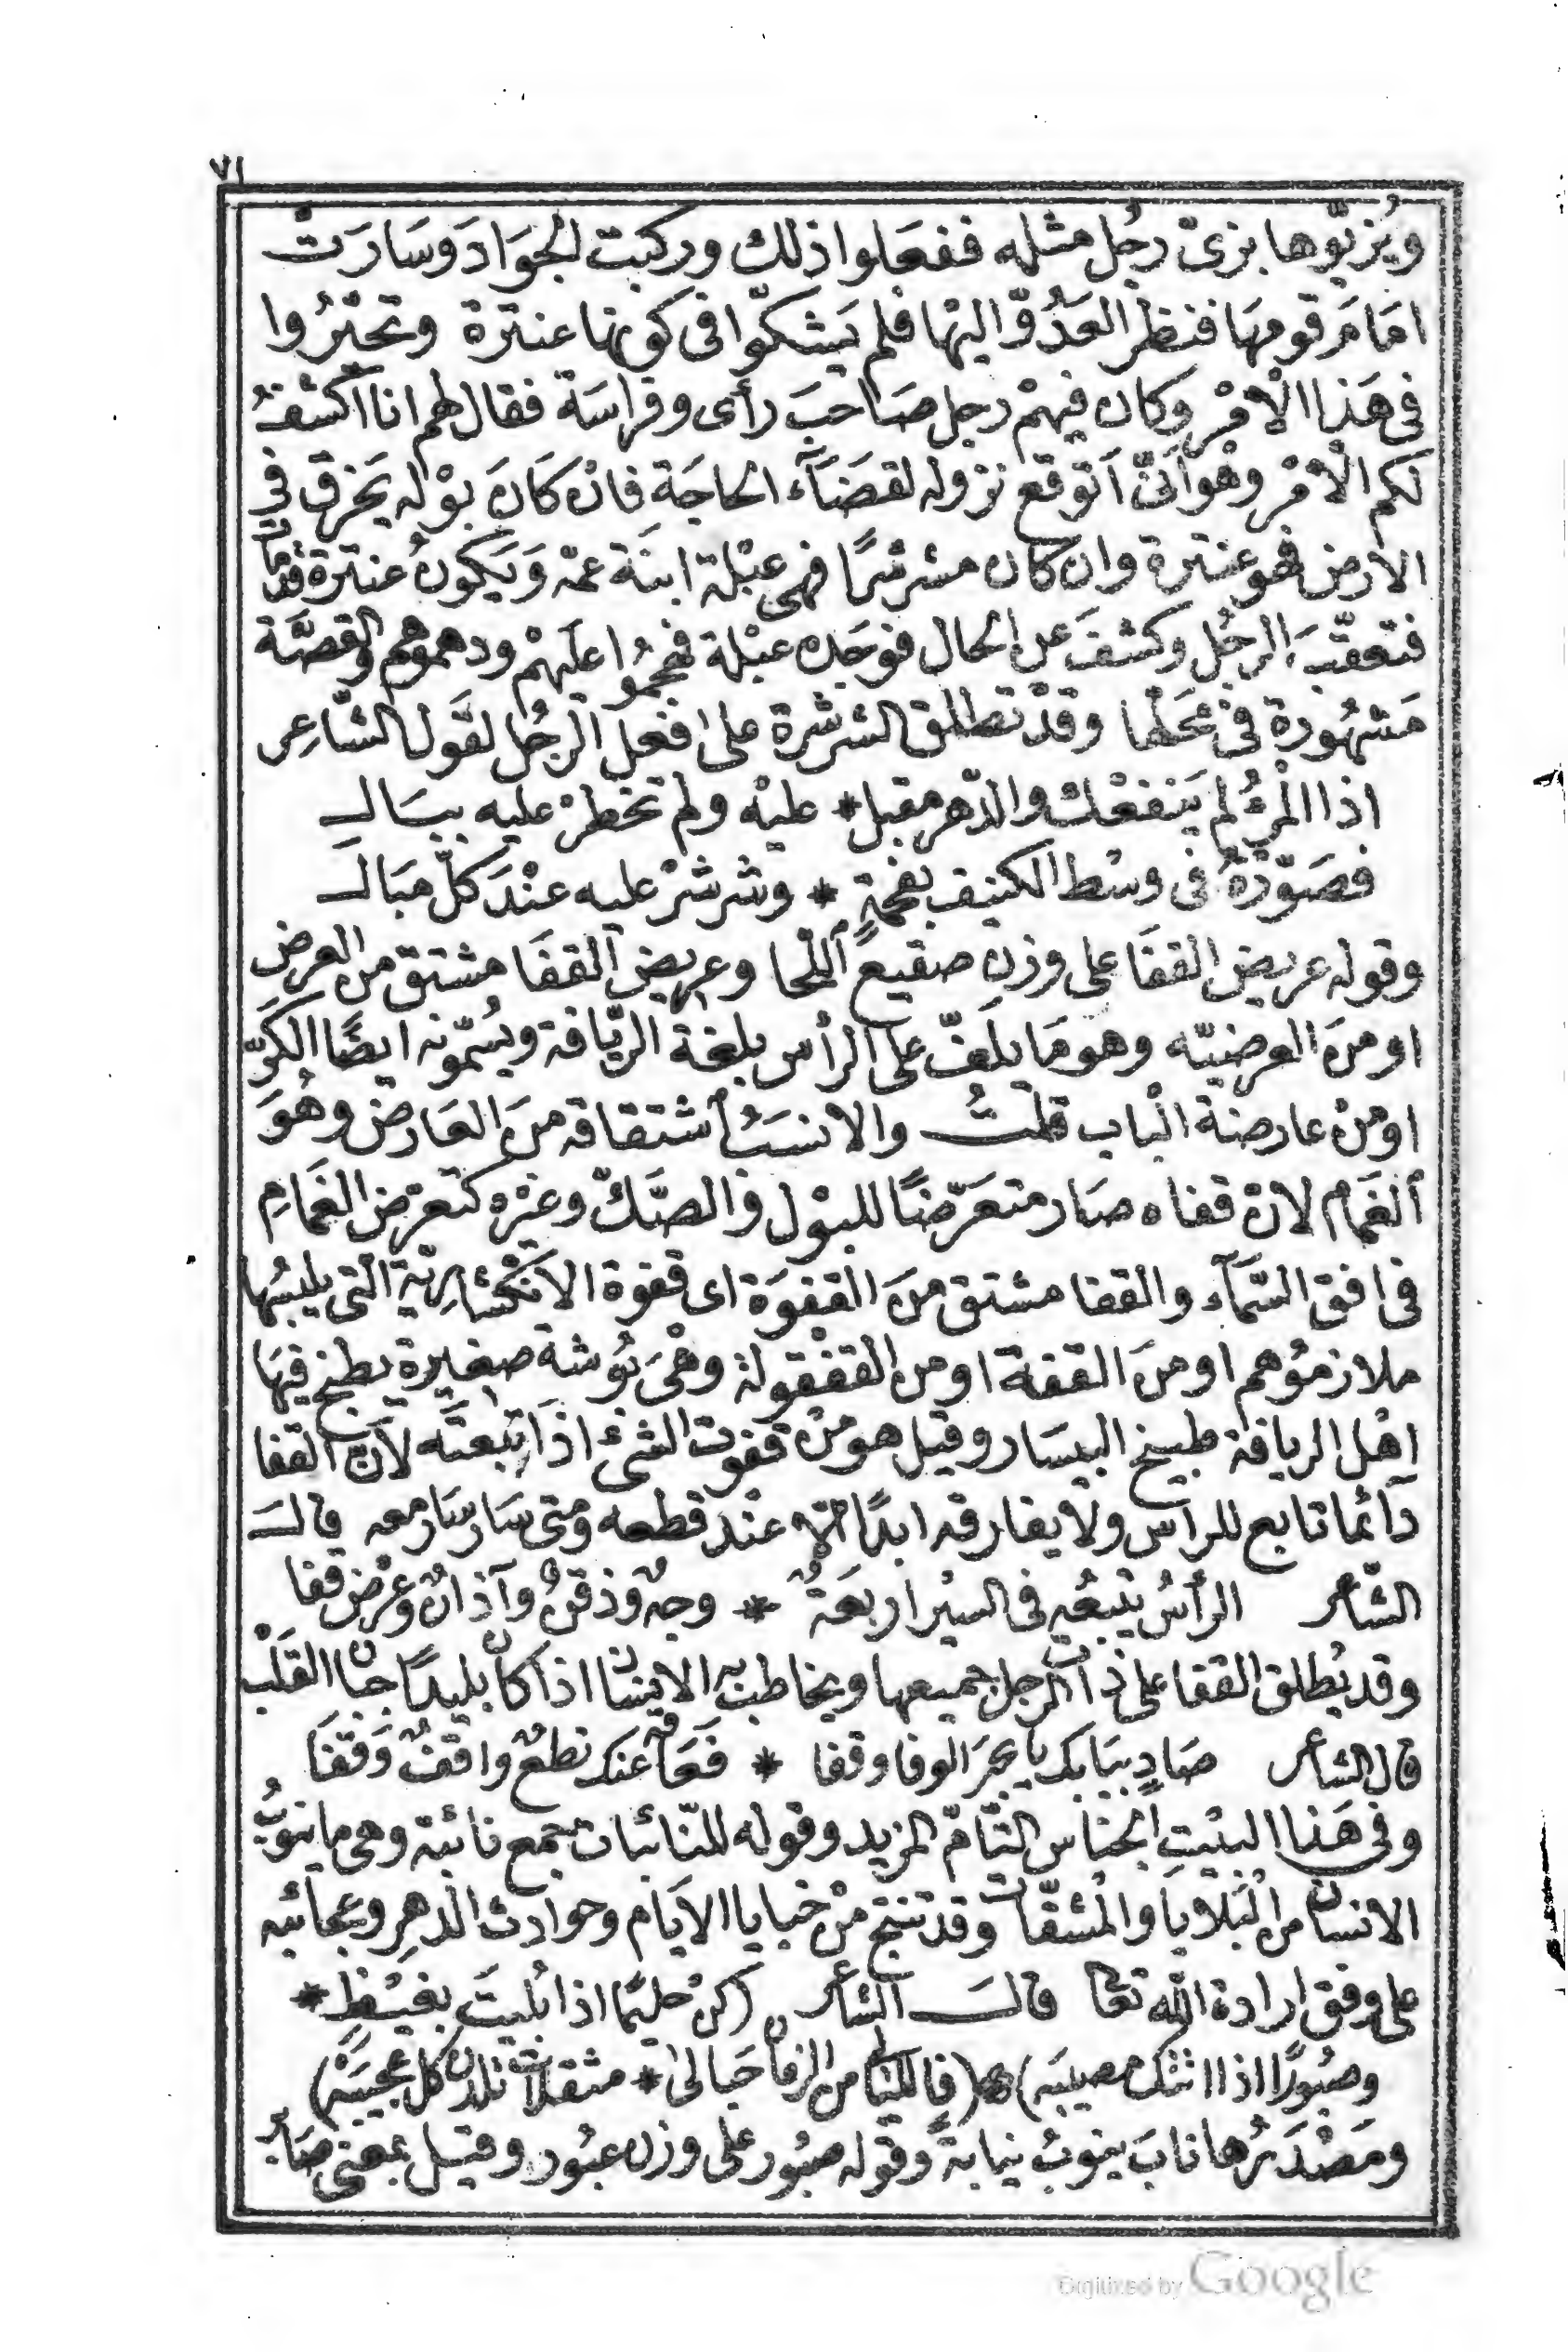 ٧١
ويُزيّوها بزىّ رجُل مثله ففعَلوا ذلك وركبت الجوَادَ وسَارَتْ
امَامَ قومهَا فنظر العَدُوّ اليْها فلم يَشكّوا فى كونها عنترة وتحيَّرُوا
فى هَذا الأمْر وكان فيهمْ رجل صَاحبَ رأى وفراسَة فقال لهم انا اكشفُ
لكم الأمْر وهو أنّى أتوقع نزوله لقضَآء الحاجَة فانْ كَانَ بوْله يَخرق فى
الارض فهو عنترة وان كان مشرشرًا فهى عبْلة ابنَة عمّه وَيَكونُ عنترة قد مات
فتعقّبَ الرجُل وكشفَ عن الحال فوجَده عبْلة فهجمُوا علَيهْم ودهموهم والقصَّة
مَشهُورة فى محَلها وقدْ تطلق الشرشرة على افعل الرجُل لقَول الشّاعِر
اذا المْرءُ لم يَنفعْك والدّهر مقبل * عليْه ولم تخطرْ عليه ببَالِ
فصَوّرْهُ فى وسْط الكنيف بفحمَةٍ * وشرشرْ عليه عنْدَ كلّ مبَالِ
وقوله عريض القفَا على وزن صقيع اللّحا وعريض القفَا مشتق من العرض
او منَ العرضيّه وهو مَا يلَفّ على الرأس بلغة الريّافة ويسُمّونه ايضًا الكَرّ
اومنْ عارضة الْباب قلتُ والانسَبُ أشتقاقه منَ العَارض وهُوَ
ألغَمَام لانّ قفاه صَار متعَرّضًا للبوْل والصَّكّ وغيْره كتعرّض الغَمامِ
فى افق السَّمَآء والقفا مشتق منَ القفوَة اى قفوة الانكشاريّة التى يلبسُها
ملازموُهم او منَ القفة او من القفْقولة وهْىَ بُوشة صغيرة يطبخ فيهَا
اهْل الريافة طبيخ البيسَار وقيل هو منْ قفوت الشئ اذَا تبعتَه لأنّ القفا
دَآئما تابع للرأس ولا يفارقه ابدًا الّا عنْد قطعه ومتى سَار سَار معه قالَ
الشّاعر الرأسُ يتْبعُه فى السيْر اربعَةٌ * وجهٌ وذقنٌ وآذانٌ وعرْض قفا
وقد يُطلق القفا على ذات الرجل جميعها ويخاطب به الانسان اذا كان بليدًا جبان القَلْب
قال الشاعر صَادٍ ببَابك يا بحرَ الوفا وقفا * فَعَاقه عنك نطعٌ واقفٌ وَقفَا
وفى هَذا البيْتِ الجناس التَّامّ المزيد وقوله للنّائبات جمع نائبة وهى ما ينوبُ
الانسان من الْبَلايا والمْشقّات وقد تنتج منْ خبايا الايَام وحوادث الدهِر وعجائبه
على وفق ارادة الله تعالى قالَ الشاعر (كنْ حليمًا اذا بُليتَ بغيْظٍ *
وصبُورًا اذا اتتك مصيبَه) (فالليالى من الزمان حَبالىٰ * مثقلات تلدن كل عجيبَه)
ومَصْدَرُها نابَ ينوبُ نيابةً وقوله صبُور على وزن عبُور وقيل بمعنى صَابر
Digitized by Google